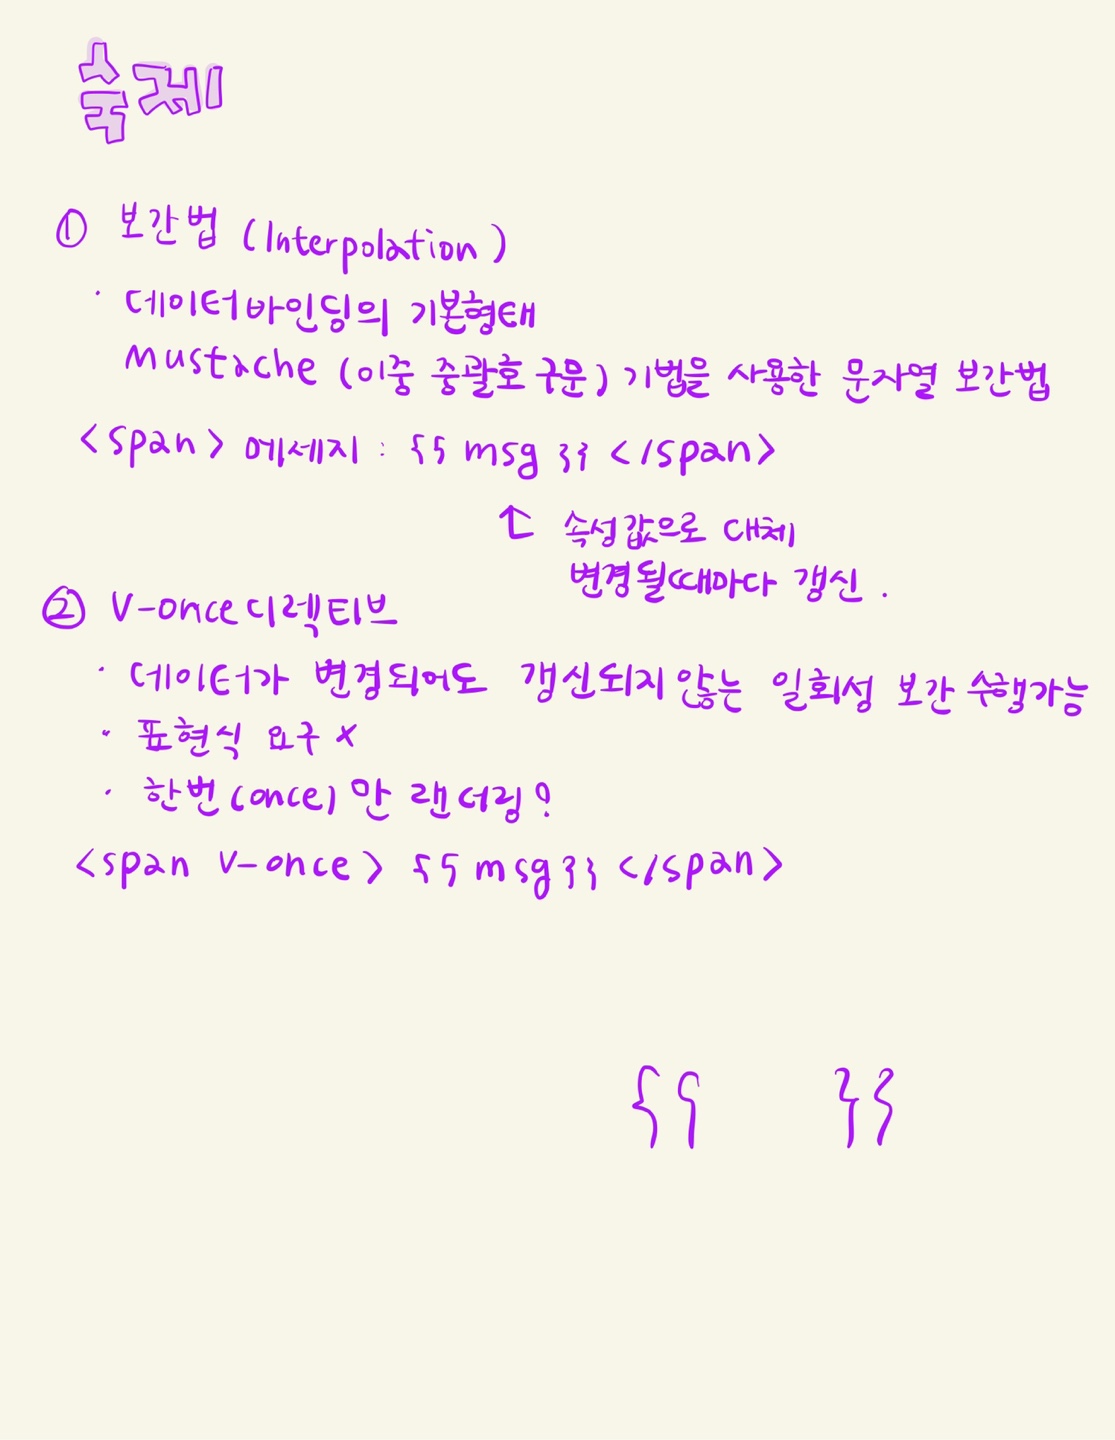 숙제
① 보간법 (Interpolation)
· 데이터바인딩의 기본형태
Mustache (이중 중괄호 구문) 기법을 사용한 문자열 보간법
<span> 메세지 : {{ msg }} </span>
↑ 속성값으로 대체
변경될때마다 갱신.
② V-once디렉티브
· 데이터가 변경되어도 갱신되지 않는 일회성 보간 수행가능
· 표현식 요구 x
· 한번(once)만 랜더링?
<span v-once> {{ msg }} </span>
{{ }}